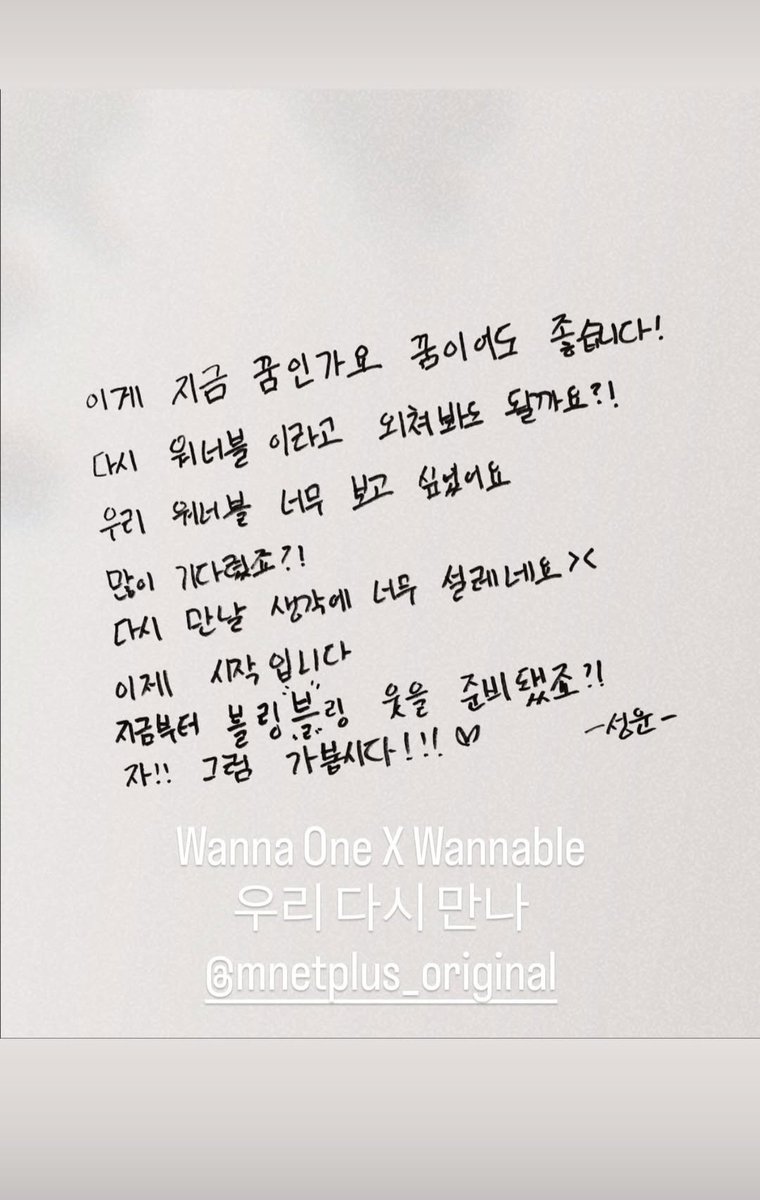 이게 지금 꿈인가요 꿈이어도 좋습니다!
다시 워너블 이라고 외쳐봐도 될까요?!
우리 워너블 너무 보고 싶었어요
많이 기다렸죠?!
다시 만날 생각에 너무 설레네요><
이제 시작입니다
지금부터 블링블링 웃을 준비됐죠?!
자!! 그럼 가봅시다!!! ♡
-성운-
Wanna One X Wannable
우리 다시 만나
@mnetplus_original